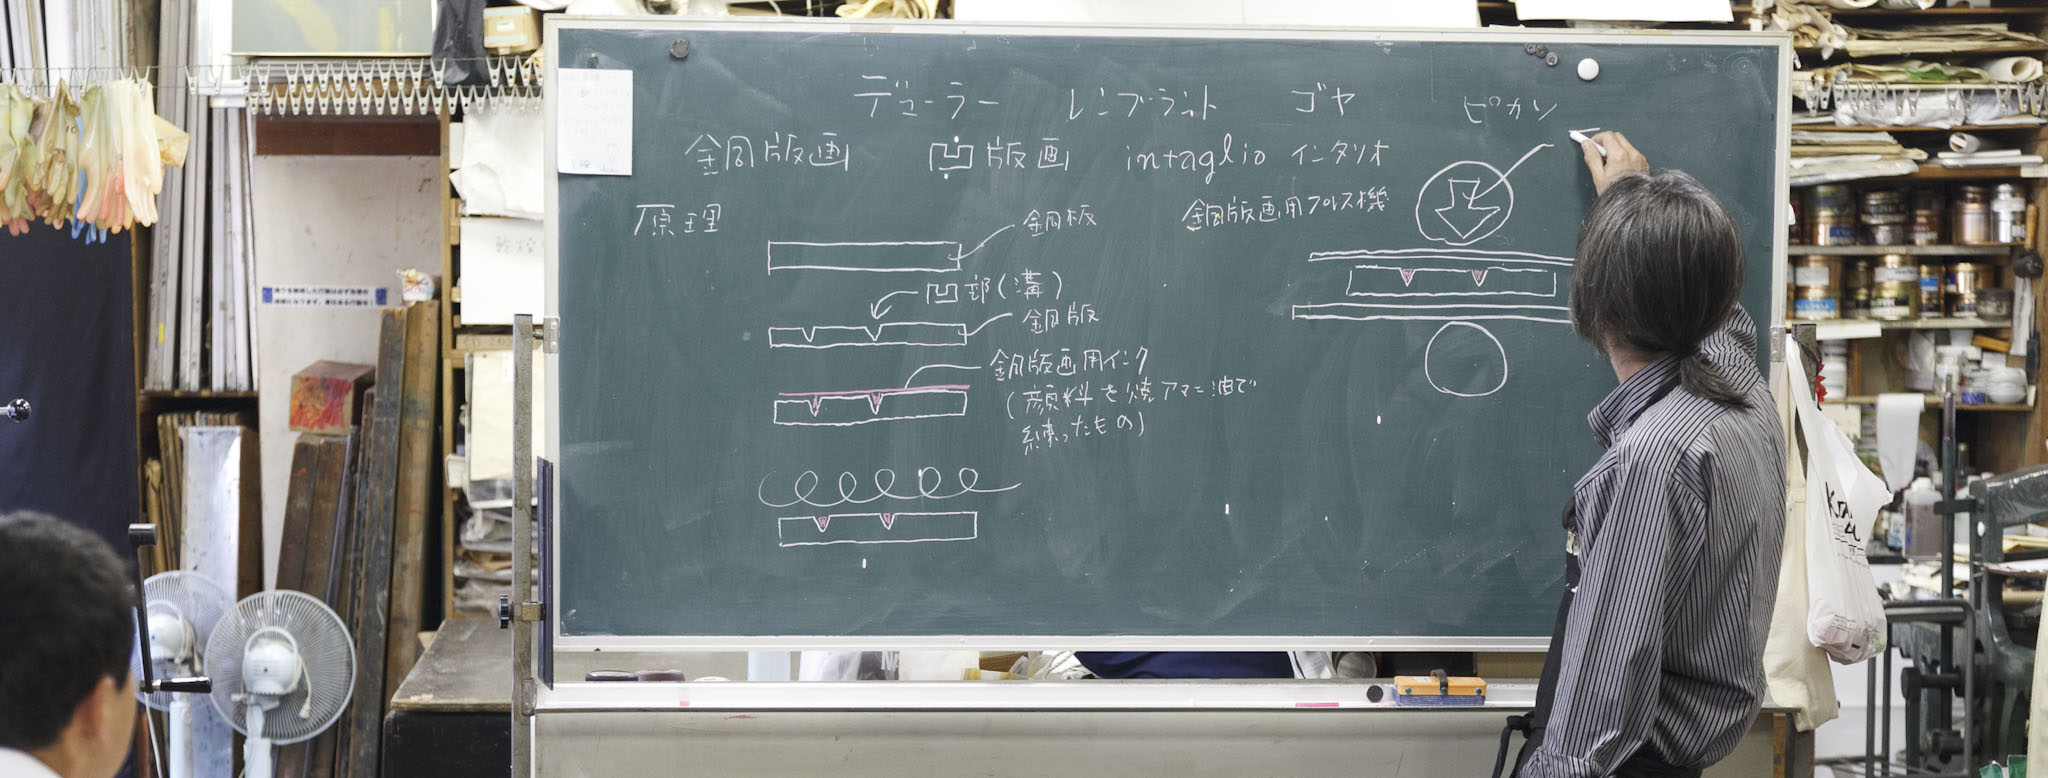 デューラー レンブラント ゴヤ ピカソ
銅版画 凹版画 intaglio インタリオ
原理
銅板
凹部(溝)
銅版
銅版画用インク
(顔料を焼アマニ油で
練ったもの)
銅版画用プレス機